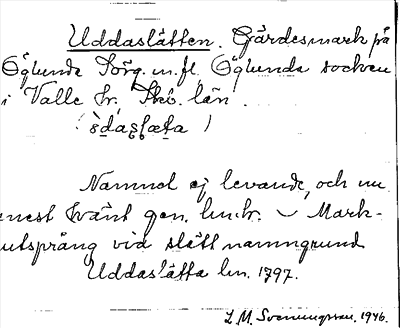 Uddaslätten. Gärdesmark på
Öglunda Törg. m. fl. Öglunda socken
i Valle hr, Skb. län.
Namnet ej levande, och nu
mest känt gen. lm.kr. Mark-
utsprång vid slätt namngrund
Uddaslätta lm. 1797.
L M. Svenungsson. 1946.